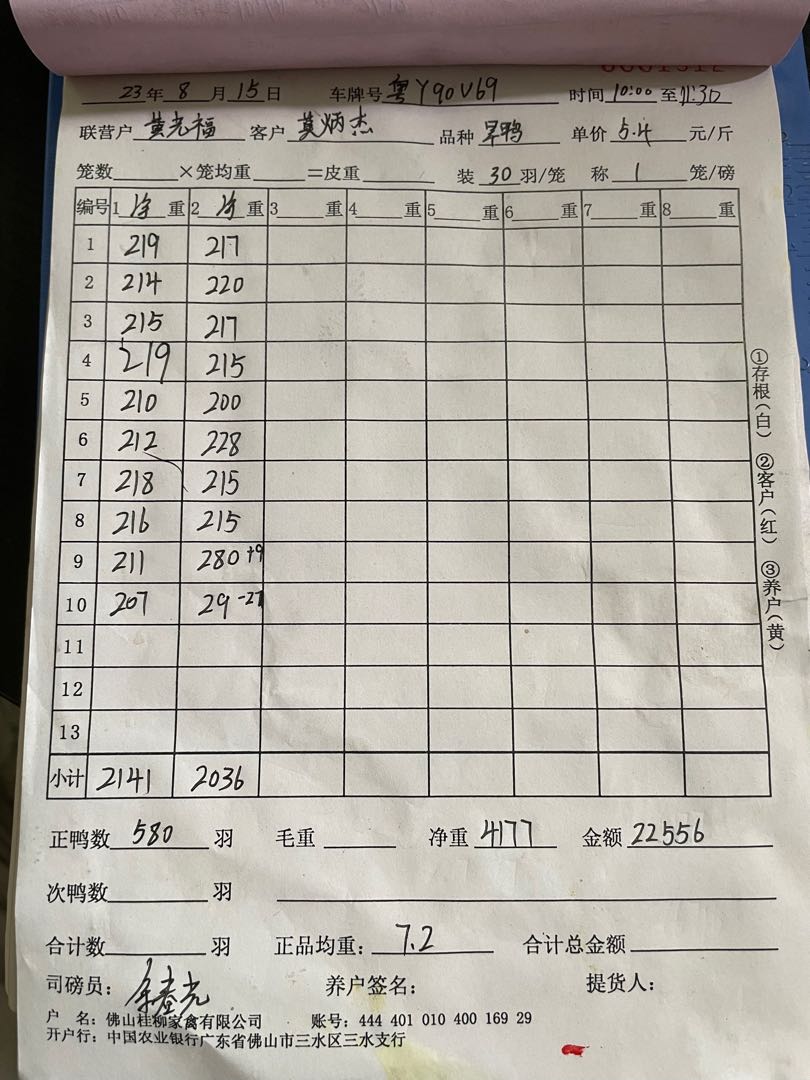 23年 8 月 15日 车牌号 粤Y90V69 时间 10:00 至 11:30
联营户 黄光福 客户 莫炳杰 品种 旱鸭 单价 5.4 元/斤
笼数 ×笼均重 =皮重 装 30 羽/笼 称 1 笼/磅
编号 1 净 重 2 净 重 3 重 4 重 5 重 6 重 7 重 8 重
1 219 217
2 214 220
3 215 217
4 219 215
5 210 200
6 212 228
7 218 215
8 216 215
9 211 280 +9
10 207 29 -27
11
12
13
小计 2141 2036
正鸭数 580 羽 毛重 净重 4177 金额 22556
次鸭数 羽
合计数 羽 正品均重: 7.2 合计总金额
司磅员: 养户签名: 提货人:
户 名: 佛山桂柳家禽有限公司 账号: 444 401 010 400 169 29
开户行: 中国农业银行广东省佛山市三水区三水支行
①存根(白) ②客户(红) ③养户(黄)